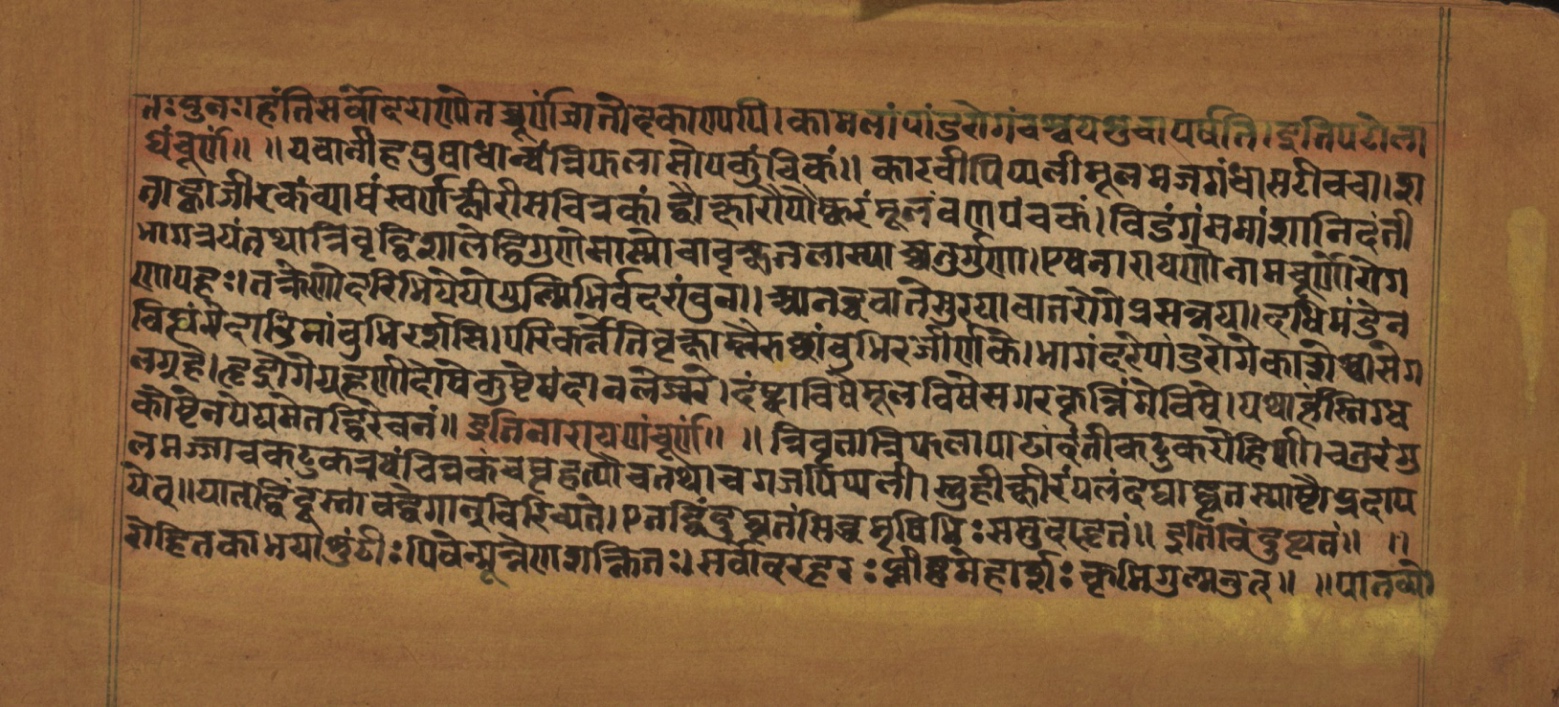 तःपुनः।हंतिसर्वोदराण्येतच्चूर्णंजातोदकाण्यपि।कामलांपांडुरोगंचश्वयथुंचापकर्षति।इतिपटोला
द्यंचूर्णं॥ ॥यवानीहपुषाधान्यंत्रिफलासोपकुंचिका॥कारवीपिप्पलीमूलमजगंधासठीवचा।श
ताह्वाजीरकंव्योषंस्वर्णक्षीरीसचित्रकां।द्वौक्षारौपौष्करंमूलंलवणपंचकं।विडंगंसमांशानिदंती
भागत्रयंतथात्रिवृद्विशालेद्विगुणेसातलास्याच्चतुर्गुणा।एषनारायणोनामचूर्णोरोग
गणापहः।तक्रेणोदरिभिःपेयोगुल्मिभिर्बदरांबुना।आनद्धवातेसुरयावातरोगेप्रसन्नया।दधिमंडेन
विट्संगेदाडिमांबुभिरर्शसि।परिकर्तेतिवृक्षाम्लैरुष्णांबुभिरजीर्णके।भगंदरेपांडुरोगेकासेश्वासेग
लग्रहे।हृद्रोगेग्रहणीदोषेकुष्टेमंदानलेज्वरे।दंष्ट्राविषेमूलविषेसगरेकृत्रिमेविषे।यथार्हंस्निग्ध
कोष्टेनपेयमेतद्विरेचनं॥इतिनारायणंचूर्णं॥ ॥त्रिवृतात्रिफलापाठादंतीकटुकरोहिणी।चतुरंगु
लमज्जाचकटुकत्रयंचित्रकंचबृहत्यौचतथाचगजपिप्पली।स्नुहीक्षीरंपलंदद्याद्घृतस्याष्टौप्रदाप
येत्॥यातद्विंदूस्तावद्वेगान्विरिच्यते।एतद्बिंदुघृतंसिद्धमृषिभिःसमुदाहृतं॥इतिबिंदुघृतं॥ ॥
रोहितकाभयाशुंठीःपिबेन्मूत्रेणशक्तितः।सर्वोदरहरःप्लीहमेहार्शःकृमिगुल्मनुत्॥ ॥पातव्यो